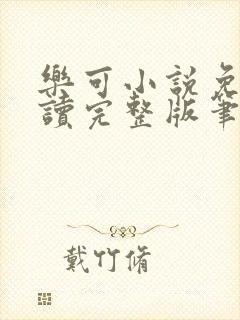 樂可小說免
讀完整版筆
戴竹脩